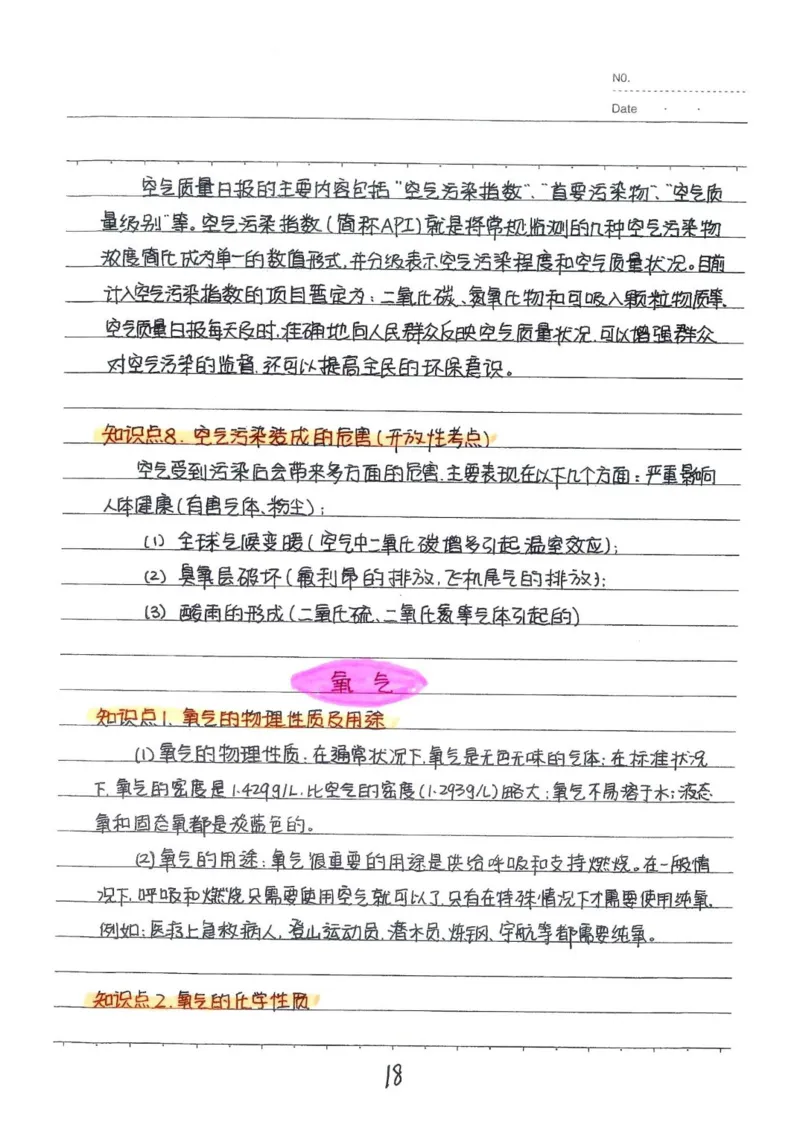 NO.
Date
空气质量日报的主要内容包括“空气污染指数”、“首要污染物”、“空气质
量级别”等。空气污染指数(简称API)就是将常规监测的几种空气污染物
浓度简化成为单一的数值形式,并分级表示空气污染程度和空气质量状况。目前
计入空气污染指数的项目暂定为:二氧化碳、氮氧化物和可吸入颗粒物质等,
空气质量日报每天及时,准确地向人民群众反映空气质量状况,可以增强群众
对空气污染的监督,还可以提高全民的环保意识。
知识点8. 空气污染造成的危害(开放性考点)
空气受到污染后会带来多方面的危害,主要表现在以下几个方面:严重影响
人体健康(有害气体、粉尘);
(1) 全球气候变暖(空气中二氧化碳增多引起温室效应);
(2) 臭氧层破坏(氟利昂的排放,飞机尾气的排放);
(3) 酸雨的形成(二氧化硫、二氧化氮等气体引起的)
氧气
知识点1. 氧气的物理性质及用途
(1)氧气的物理性质:在通常状况下,氧气是无色无味的气体;在标准状况
下,氧气的密度是1.429g/L,比空气的密度(1.293g/L)略大;氧气不易溶于水;液态
氧和固态氧都是淡蓝色的。
(2)氧气的用途:氧气很重要的用途是供给呼吸和支持燃烧。在一般情
况下,呼吸和燃烧只需要使用空气就可以了,只有在特殊情况下才需要使用纯氧,
例如:医疗上急救病人,登山运动员、潜水员、炼钢、宇航等都需要纯氧。
知识点2.氧气的化学性质
18